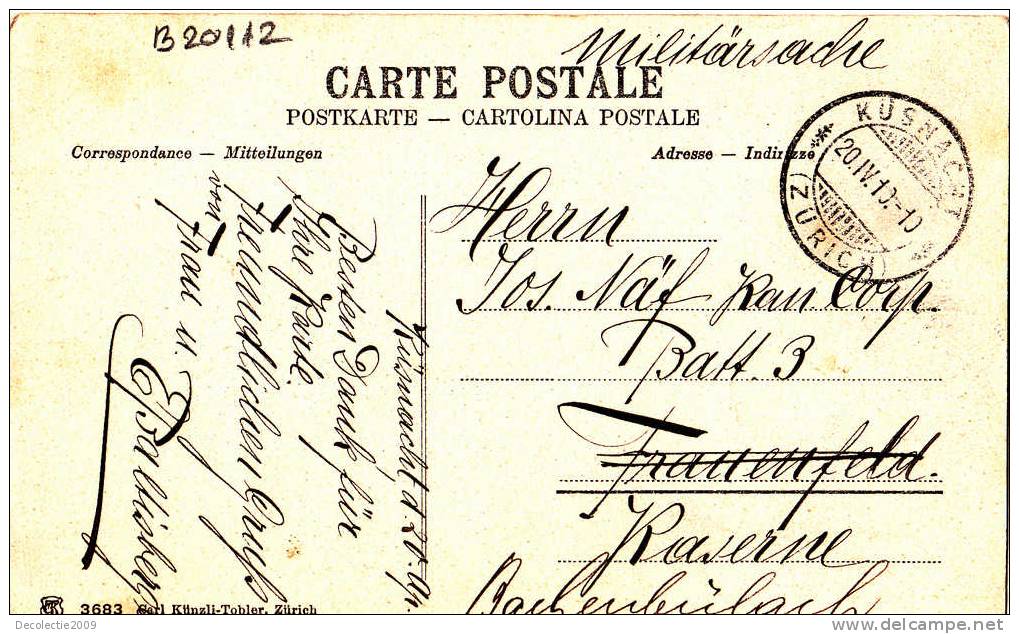 B20112
Militärsache
CARTE POSTALE
POSTKARTE — CARTOLINA POSTALE
Correspondance — Mitteilungen
Adresse — Indirizzo
KÜSNACHT
20.IV.10.-10
(ZÜRICH)
Herrn
Jos. Näf Kan Corp.
Batt. 3
Frauenfeld.
Kaserne
Küsnacht d 20. Ap
Besten Dank für
Ihre Karte.
freundlichen Gruß
von Frau u.
3683 Carl Künzli-Tobler, Zürich
Decolectie2009
www.delcampe.net